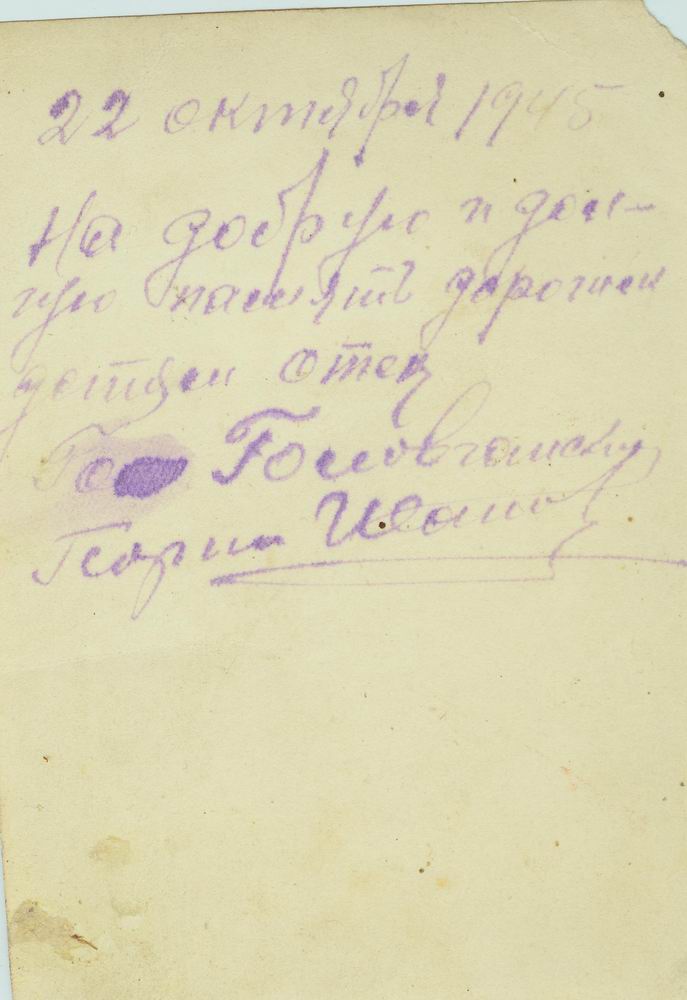 22 октября 1945
На добрую и дол-
гую память дорогим
детям отец
Го Головчанский
Георгии Иванов